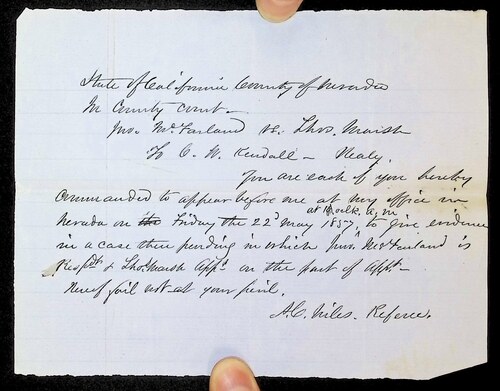 State of California County of Nevada
In County court.
Jno. McFarland vs. Thos. Marsh
To C. W. Kendall - Healy.
You are each of you hereby
commanded to appear before me at my office in
at 10 oclk. a. m
Nevada on the Friday the 22d May 1857, to give evidence
in a case then pending in which Jno. McFarland is
Respdt & Thos Marsh Appt. on the part of Appt -
Hereof fail not at your peril.
A.C. Niles. Referee.